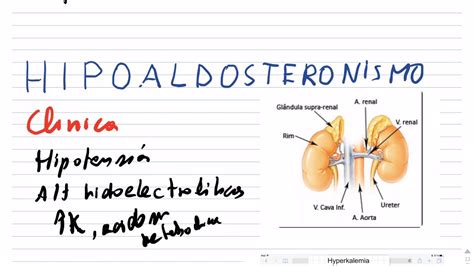 HIPOALDOSTERONISMO
Clinica
Hipotensión
Alt hidoelectroliticas
↑K, acidosis metabolica
Glândula supra-renal
A. renal
V. renal
Rim
Ureter
V. Cava Inf.
A. Aorta
Hyperkalemia